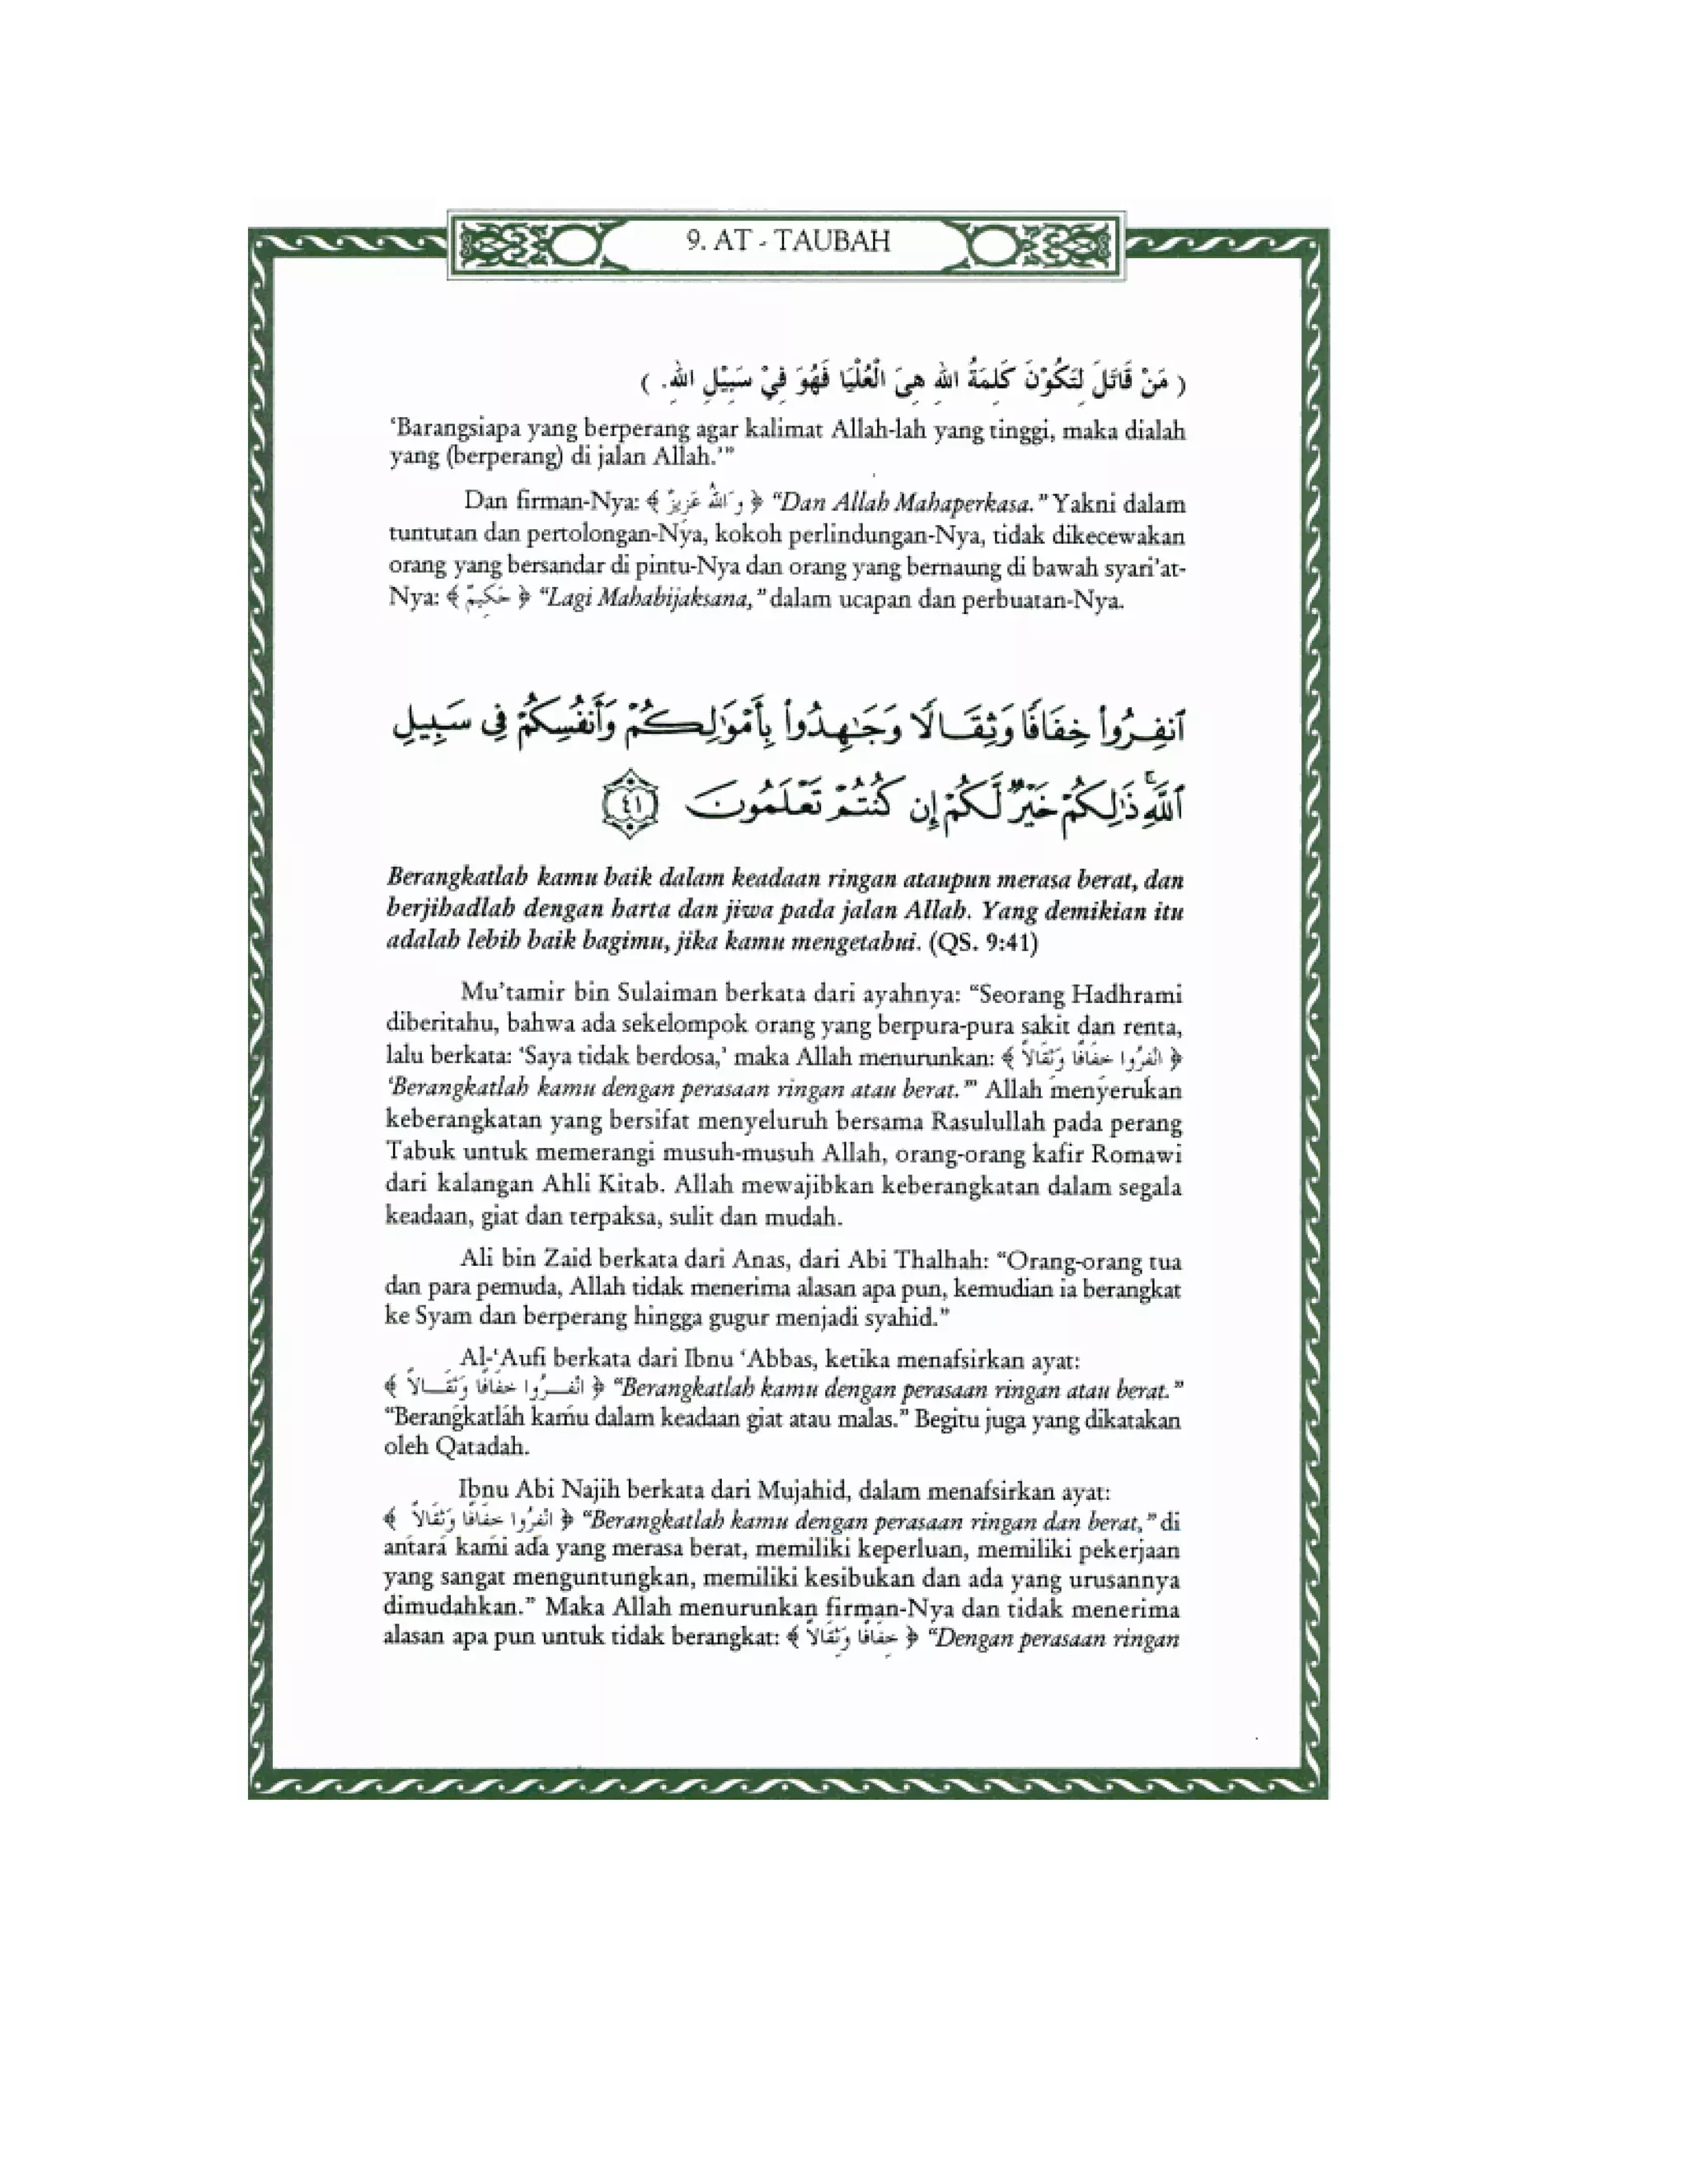 9. AT - TAUBAH
( مَنْ قَاتَلَ لِتَكُوْنَ كَلِمَةُ اللهِ هِيَ الْعُلْيَا فَهُوَ فِيْ سَبِيْلِ اللهِ. )
‘Barangsiapa yang berperang agar kalimat Allah-lah yang tinggi, maka dialah
yang (berperang) di jalan Allah.’”
Dan firman-Nya: ﴿ وَاللهُ عَزِيزٌ ﴾ “Dan Allah Mahaperkasa.” Yakni dalam
tuntutan dan pertolongan-Nya, kokoh perlindungan-Nya, tidak dikecewakan
orang yang bersandar di pintu-Nya dan orang yang bernaung di bawah syari’at-
Nya: ﴿ حَكِيمٌ ﴾ “Lagi Mahabijaksana,” dalam ucapan dan perbuatan-Nya.
ٱنفِرُوا۟ خِفَافًا وَثِقَالًا وَجَـٰهِدُوا۟ بِأَمْوَٰلِكُمْ وَأَنفُسِكُمْ فِى سَبِيلِ
ٱللَّهِ ۚ ذَٰلِكُمْ خَيْرٌ لَّكُمْ إِن كُنتُمْ تَعْلَمُونَ ٤١
Berangkatlah kamu baik dalam keadaan ringan ataupun merasa berat, dan
berjihadlah dengan harta dan jiwa pada jalan Allah. Yang demikian itu
adalah lebih baik bagimu, jika kamu mengetahui. (QS. 9:41)
Mu’tamir bin Sulaiman berkata dari ayahnya: “Seorang Hadhrami
diberitahu, bahwa ada sekelompok orang yang berpura-pura sakit dan renta,
lalu berkata: ‘Saya tidak berdosa,’ maka Allah menurunkan: ﴿ انْفِرُوا خِفَافًا وَثِقَالاً ﴾
‘Berangkatlah kamu dengan perasaan ringan atau berat.’” Allah menyerukan
keberangkatan yang bersifat menyeluruh bersama Rasulullah pada perang
Tabuk untuk memerangi musuh-musuh Allah, orang-orang kafir Romawi
dari kalangan Ahli Kitab. Allah mewajibkan keberangkatan dalam segala
keadaan, giat dan terpaksa, sulit dan mudah.
Ali bin Zaid berkata dari Anas, dari Abi Thalhah: “Orang-orang tua
dan para pemuda, Allah tidak menerima alasan apa pun, kemudian ia berangkat
ke Syam dan berperang hingga gugur menjadi syahid.”
Al-‘Aufi berkata dari Ibnu ‘Abbas, ketika menafsirkan ayat:
﴿ انْفِرُوا خِفَافًا وَثِقَالاً ﴾ “Berangkatlah kamu dengan perasaan ringan atau berat.”
“Berangkatlah kamu dalam keadaan giat atau malas.” Begitu juga yang dikatakan
oleh Qatadah.
Ibnu Abi Najih berkata dari Mujahid, dalam menafsirkan ayat:
﴿ انْفِرُوا خِفَافًا وَثِقَالاً ﴾ “Berangkatlah kamu dengan perasaan ringan dan berat,” di
antara kami ada yang merasa berat, memiliki keperluan, memiliki pekerjaan
yang sangat menguntungkan, memiliki kesibukan dan ada yang urusannya
dimudahkan.” Maka Allah menurunkan firman-Nya dan tidak menerima
alasan apa pun untuk tidak berangkat: ﴿ خِفَافًا وَثِقَالاً ﴾ “Dengan perasaan ringan